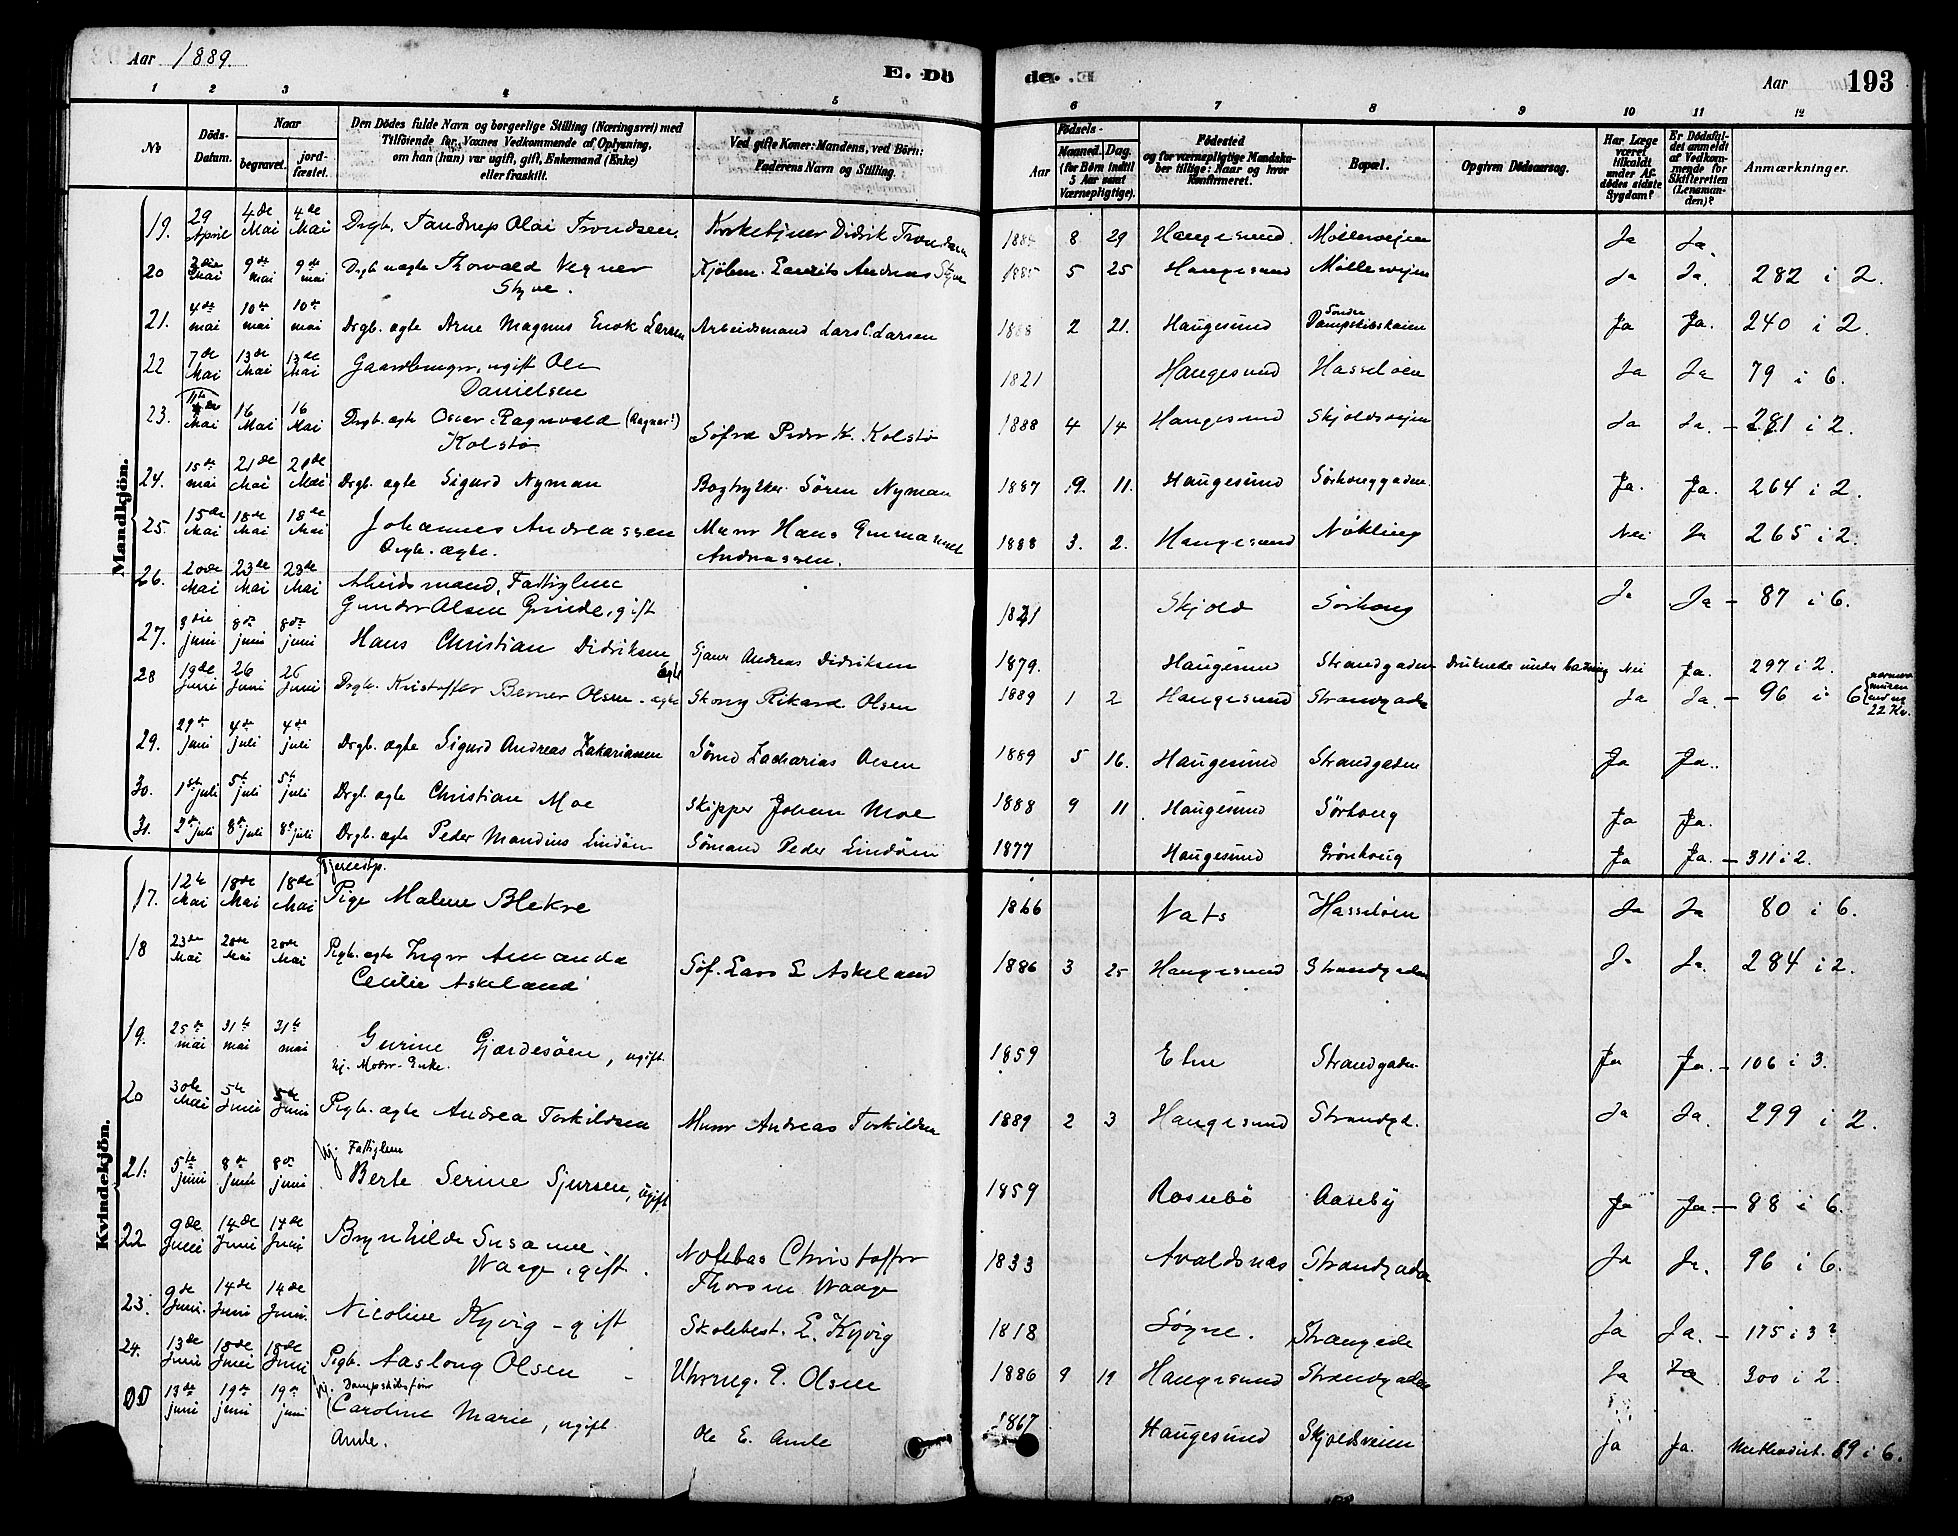 Aar 1889.
E. Dö
de.
Aar
193
1 2 3 4 5 6 7 8 9 10 11 12
No
Döds-Datum.
Naar
begravet.
jordfæstet.
Den Dödes fulde Navn og borgerlige Stilling (Næringsvei) med
Tilföiende for Voxnes Vedkommende af Oplysning,
om han (hun) var ugift, gift, Enkemand (Enke)
eller fraskilt.
Ved gifte Koner: Mandens, ved Börn:
Faderens Navn og Stilling.
Födsels-
Aar
Maaned. Dag.
(for Börn indtil
5 Aar samt
Værnepligtige).
Födested
og for værnepligtige Mandskaber tillige: Naar og hvor
Konfirmeret.
Bopæl.
Opgiven Dödsaarsag.
Har Læge været tilkaldt under Afdödes sidste Sygdom?
Er Dödsfaldet anmeldt af Vedkommende for Skifteretten (Lensmanden)?
Anmærkninger.
Mandkjön.
19. 29 April 4de Mai 4de Mai Drgb. Tandrup Olai Trondsen. Kirketjener Didrik Trondsen 8 29 Haugesund. Mølleveien Ja Ja.
20 Mai 9de mai 9de mai Drgb uægte Thorvald Vegner Styve. Kjøbm. Laurits Andreas Styve 1885 5 25 Haugesund Mølleveien Ja Ja. 282 i 2.
21. 4de mai 10de mai 10de mai Drgb. ægte Arne Magnus Enok Larsen Arbeidsmand Lars C. Larsen 1888 2 21. Haugesund Søndre Dampskibskaien Ja Ja. 240 i 2.
22 7de Mai 13de Mai 13de Mai Gaardbruger, ugift Ole Danielsen 1821 Haugesund Hasseløen Ja Ja 79 i 6.
23. 11te Mai 16 Mai 16 Mai Drgb. ægte Oscar Ragnvald (Ragnar!) Kolstø Søfrd Peder K. Kolstø 1888 4 14 Haugesund Skjoldsveien Ja Ja. – 281 i 2.
24. 15de mai 21de Mai 21de Mai Drgb. ægte Sigurd Nyman Bogtrykker Søren Nyman 1887 9. 11. Haugesund Sørhauggaden Ja. Ja. 264 i 2.
25. 15de Mai 18de Mai 18de Mai Johannes Andreassen Drgb. ægte. Murer Hans Andreassen. 1888 3. 2. Haugesund Nøkling Nei Ja 265 i 2.
26. 20de Mai 23de Mai 23de Mai Arbeidsmand, Fattiglem Gunder Olsen Grinde, gift Skjold Sørhaug Ja Ja – 87 i 6.
27. 3die juni 8de juni 8de juni Hans Christian Didriksen ægte Andreas Didriksen 1879. Haugesund Strandgaden Druknede under badning Nei Ja. 297 i 2.
28 19de Juni 26 Juni 26 Juni Drgb. Kristoffer Berner Olsen ægte Skomg Rikard Olsen 1889 1 2 Haugesund Strandgade Ja Ja. – 96 i 6 22 Kr.
29. 29de juni 4de juli 4de juli Drgb. ægte Sigurd Andreas Zakariassen Sømd Zacharias Olsen 1889 5 16. Haugesund Strandgaden Ja Ja.
30. 1ste juli 5te juli 5te juli Drgb. ægte Christian Moe Skipper Johan Moe 1888 9 11 Haugesund Sørhaug Ja Ja.
31. 2de juli 8de juli 8de juli Drgb. ægte Peder Mandius Lindøen Sømand Peder Lindøen 1877 Haugesund Grønhaug Ja Ja. – 311 i 2.
Kvindekjön.
17. 12te Mai 18de Mai 18de Mai Pige Malene Blekre 1866 Vats Hasseløen Ja Ja 80 i 6.
18 23de Mai 28de Mai 28de Mai Pigb. ægte Inger Amanda Cecilie Askeland Søf. Lars L Askeland 1886 3 25 Haugesund Strandgaden Ja Ja. 284 i 2.
19. 25de mai 31te mai 31te mai Gurine Gjærdesøen, ugift hj. Moder Enke. 1859 Etne Strandgaden Ja Ja. – 106 i 3.
20 30te Mai 5te Juni 5te Juni Pigb. ægte Andrea Torkildsen Murer Andreas Torkildsen 1889 2 3 Haugesund Strandgd. Ja Ja. 299 i 2.
21. 5te juni 8de juni 8de juni Fattiglem Berte Serine Sjursen, ugift 1859 Rossebø Aaseby Ja Ja. – 88 i 6.
22 9de Juni 14de Juni 14de Juni Brynhilde Susanne Waage, gift. Notebas Christoffer Thorsen Waage 1833 Avaldsnæs Strandgaden Ja Ja. 96 i 6.
23. 9de Juni. 14de Juni 14de Juni. Nicoline Kyvig – gift Skolebest. E. Kyvig 1818 Søgne. Strangade Ja Ja. – 175 i 3?
24. 13de Juni 18de Juni 18de Juni Pigb. Aaslaug Olsen Uhrmg. P. Olsen 1886 9 19 Haugesund Strandgaden Ja Ja 300 i 2.
13de juni 19de juni 19de juni Caroline Marie, ugift Amle. Ole E. Amle 1867 Haugesund Skjoldsveien Ja Ja. Methodist. 89 i 6.